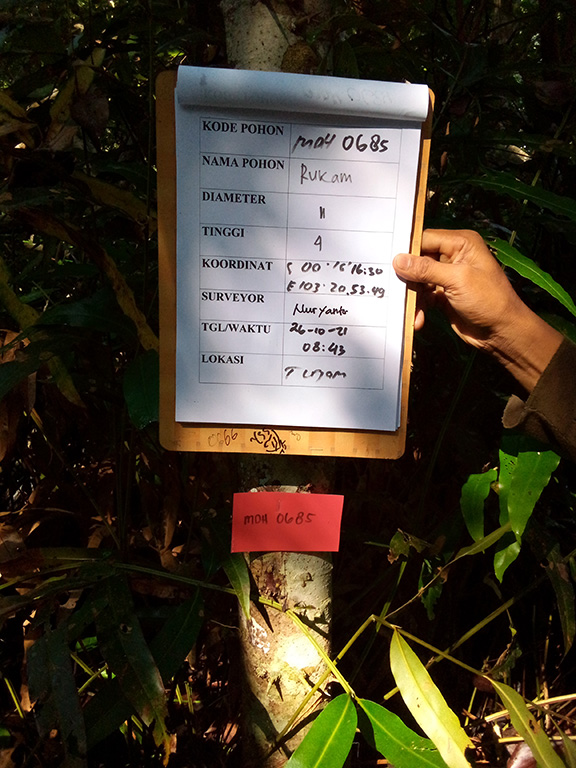 KODE POHON MDH 0685
NAMA POHON Rukam
DIAMETER 11
TINGGI 4
KOORDINAT S 00°15'16.30
E103.20.53.49
SURVEYOR Nuryanto
TGL/WAKTU 26-10-21
08:43
LOKASI
MDH 0685